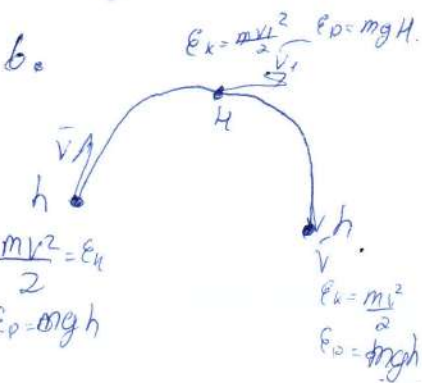 6.
εₖ = mv₁²/2 εₚ = mgH.
v̄₁
H
v̄
h
mv²/2 = εₖ
εₚ = mgh
h
v̄
εₖ = mv²/2
εₚ = mgh